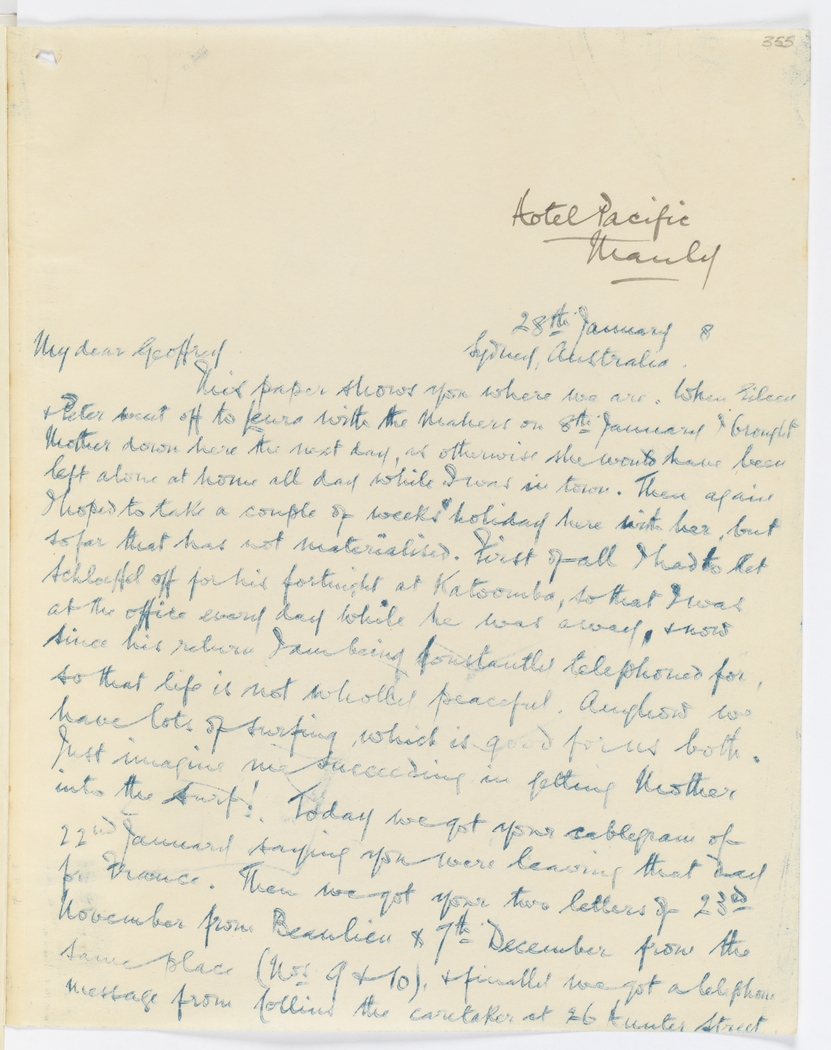 355
Hotel Pacific
Manly
28th January 8
Sydney, Australia.
My dear Geoffrey
This paper shows you where we are. When Eileen
& Peter went off to with the Makers on 8th January I brought
Mother down here the next day, as otherwise she would have been
left alone at home all day while I was in town. Then again
I hoped to take a couple of weeks' holiday here with her, but
so far that has not materialised. First of all I had to let
Schleiffel off for his fortnight at Katoomba, so that I was
at the office every day while he was away, & now
since his return I am being constantly telephoned for,
so that life is not wholly peaceful. Anyhow we
have lots of surfing, which is good for us both.
Just imagine me succeeding in getting Mother
into the surf! Today we got your cablegram of
22nd January saying you were leaving that day
for France. Then we got your two letters of 23rd
November from Beaulieu & 7th December from the
same place (Nos 9 & 10), & finally we got a telephone
message from Collins the caretaker at 26 Hunter Street